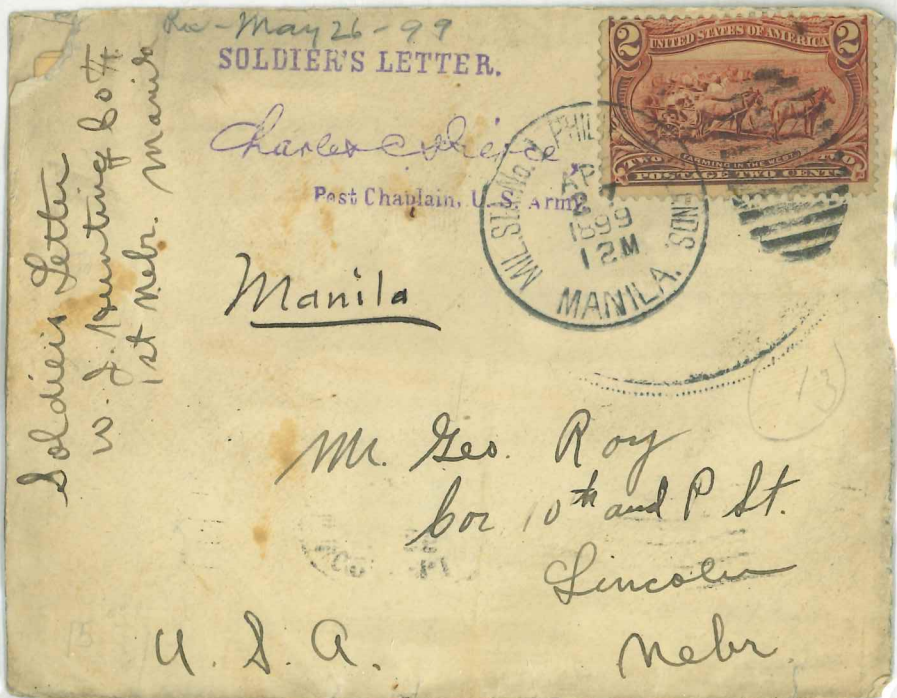 Rec - May 26 - 99
SOLDIER'S LETTER.
Charles C. Pierce
Post Chaplain, U. S. Army.
Manila
Soldiers Letter
W. J. Hunting Co H.
1st Nebr. Manila
2 UNITED STATES OF AMERICA 2
FARMING IN THE WEST
POSTAGE TWO CENTS
MIL. STA. No. 1 PHIL. ISLANDS.
AP
1899
12 M
MANILA.
13
Mr. Geo. Roy
Cor 10th and P St.
Lincoln
Nebr.
U. S. A.
15